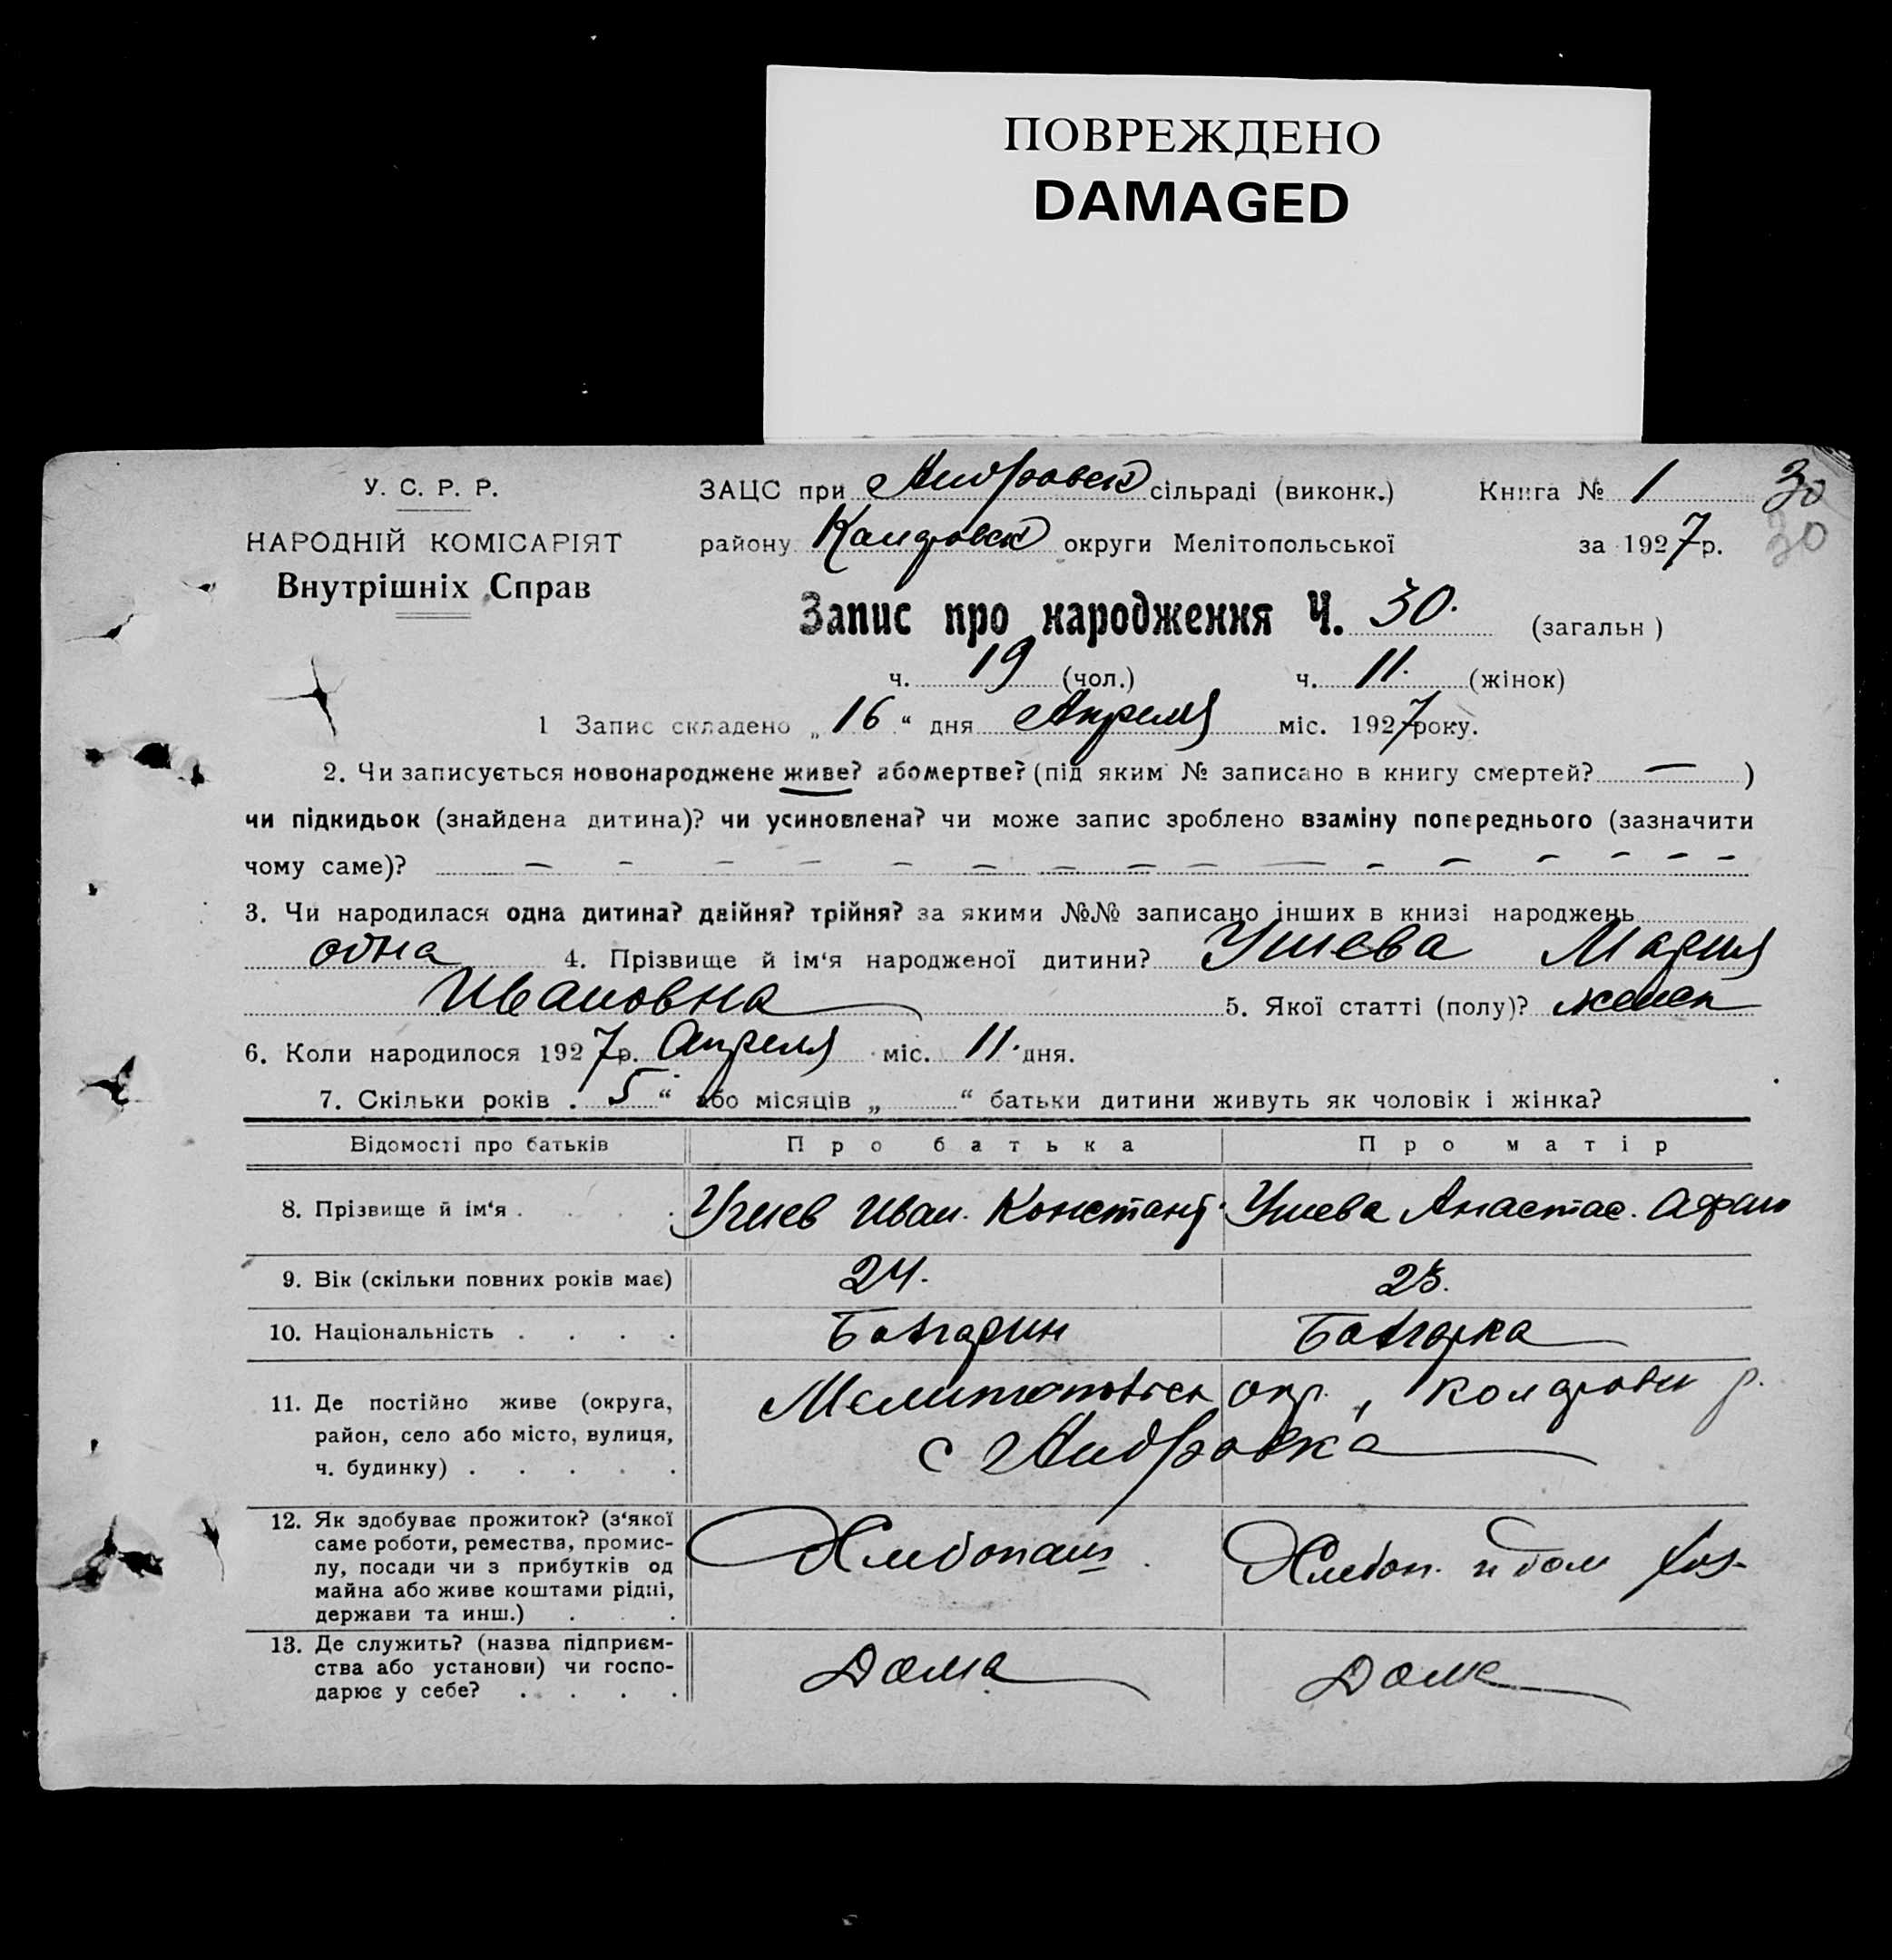 ПОВРЕЖДЕНО
DAMAGED
У. С. Р. Р.
НАРОДНІЙ КОМІСАРІЯТ
Внутрішніх Справ
ЗАЦС при Андровск сільраді (виконк.) Книга № 1 30
району округи Мелітопольської за 1927 р. 30
Запис про народження Ч. 30. (загальн)
ч. 19 (чол.) ч. 11. (жінок)
1 Запис складено „16“ дня Апреля міс. 1927 року.
2. Чи записується новонароджене живе? або мертве? (під яким № записано в книгу смертей? — )
чи підкидьок (знайдена дитина)? чи усиновлена? чи може запис зроблено взаміну попереднього (зазначити
чому саме)? — — — — — — — — — — — — — — — —
3. Чи народилася одна дитина? двійня? трійня? за якими №№ записано інших в книзі народжень
одна 4. Прізвище й ім‘я народженої дитини? Мария
Ивановна 5. Якої статті (полу)? женск
6. Коли народилося 1927 р. Апреля міс. 11. дня.
7. Скільки років . 5 “ або місяців „ “ батьки дитини живуть як чоловік і жінка?
Відомості про батьків Про батька Про матір
8. Прізвище й ім‘я . . . . . Иван. Констант. Анастас. Афан
9. Вік (скільки повних років має) 24. 23.
10. Національність . . . . Болгарин Болгарка
11. Де постійно живе (округа,
район, село або місто, вулиця,
ч. будинку) . . . . .
Мелитопольск окр., р.
с Андровка
12. Як здобуває прожиток? (з‘якої
саме роботи, ремества, промис-
лу, посади чи з прибутків од
майна або живе коштами рідні,
держави та инш.) . . .
Хлебопаш. Хлебоп. и дом хоз.
13. Де служить? (назва підприєм-
ства або установи) чи госпо-
дарює у себе? . . . .
Дома Дома